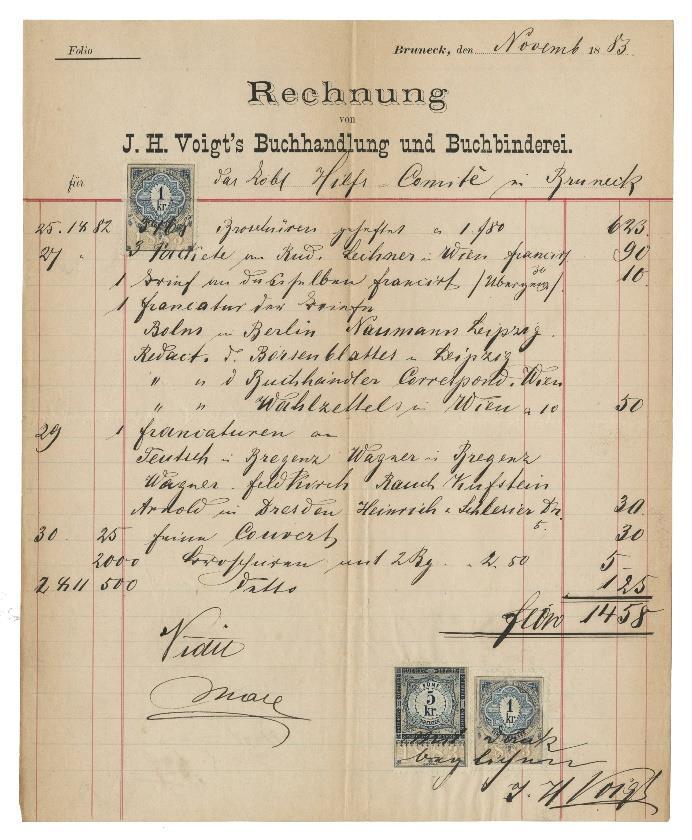 Folio
Bruneck, den Novemb 1883
Rechnung
von
J. H. Voigt's Buchhandlung und Buchbinderei.
für das Hilfs-Comité in Bruneck
1 kr.
25. 1882 Broschüren geheftet a 1.80 6 23.
27 " 3 an Rud. Lechner in Wien francirt 90
1 Brief an denselben francirt 10.
1 francatur der Briefe
Bolms in Berlin Naumann Leipzig.
Redact. d. Börsenblattes in Leipzig
" " d Buchhändler Correspond. Wien
" " Wahlzettel in Wien a 10 50
29 1 francaturen an
Teutsch in Bregenz Wagner in Bregenz
Wagner. Feldkirch Rauch Kufstein
Arnold in Dresden Heinrich Schlesier Dr. 30
5.
30. 25 feine Couvert 30
2000 Broschüren mit 2 Bg. a 2.50 5 -
2811 500 Detto 1 25
flöw 14 58
Vidit
5 kr.
1 kr.
Mit Dank
beglichen
J. H Voigt